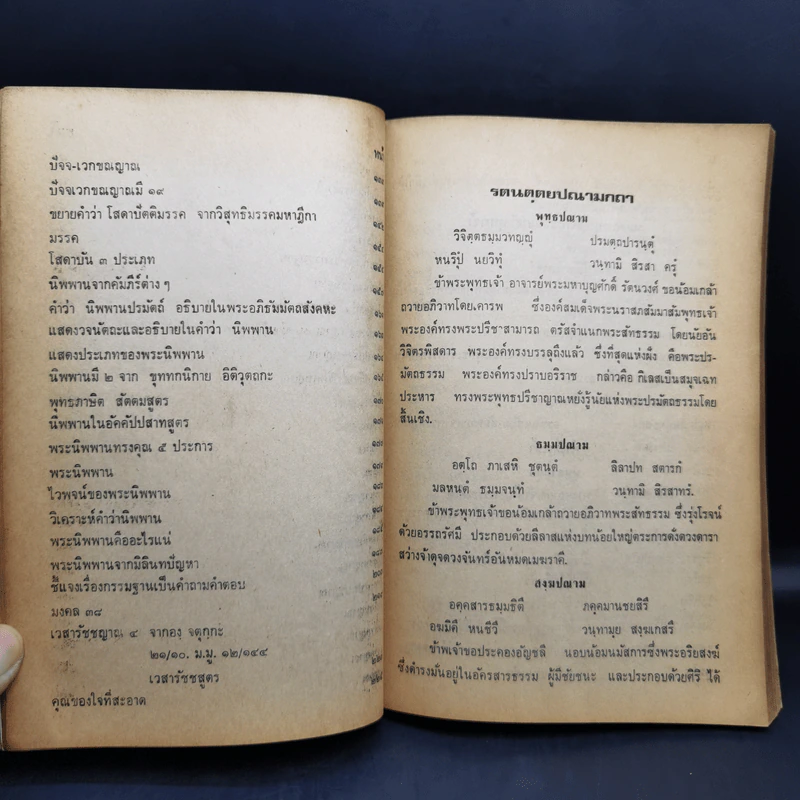 หน้า
ปัจจ-เวกขณญาณ
ปัจจเวกขณญาณมี ๑๙
ขยายคำว่า โสดาปัตติมรรค จากวิสุทธิมรรคมหาฎีกา
มรรค
โสดาบัน ๓ ประเภท
นิพพานจากคัมภีร์ต่าง ๆ
คำว่า นิพพานปรมัตถ์ อธิบายในพระอภิธัมมัตถสังคหะ
แสดงวจนัตถะและอธิบายในคำว่า นิพพาน
แสดงประเภทของพระนิพพาน
นิพพานมี ๒ จาก ขุททกนิกาย อิติวุตถกะ
พุทธภาษิต สัตตมสูตร
นิพพานในอัคคัปปสาทสูตร
พระนิพพานทรงคุณ ๕ ประการ
พระนิพพาน
ไวพจน์ของพระนิพพาน
วิเคราะห์คำว่านิพพาน
พระนิพพานคืออะไรแน่
พระนิพพานจากมิลินทปัญหา
ชี้แจงเรื่องกรรมฐานเป็นคำถามคำตอบ
มงคล ๓๘
เวสารัชชญาณ ๔ จากองฺ จตุกฺกะ
๒๑/๑๐. ม.มู. ๑๒/๑๔๔
เวสารัชชสูตร
คุณของใจที่สะอาด
รตนตฺตยปณามกถา
พุทฺธปณาม
วิจิตฺตธมฺมวทญฺญุํ ปรมตฺถปารนฺตุํ
หนริปุํ นยวิทุํ วนฺทามิ สิรสา ครุํ
ข้าพระพุทธเจ้า อาจารย์พระมหาบุญศักดิ์ รัตนวงศ์ ขอน้อมเกล้า
ถวายอภิวาทโดยเคารพ ซึ่งองค์สมเด็จพระนราสภสัมมาสัมพุทธเจ้า
พระองค์ทรงพระปรีชาสามารถ ตรัสจำแนกพระสัทธรรม โดยนัยอัน
วิจิตรพิสดาร พระองค์ทรงบรรลุถึงแล้ว ซึ่งที่สุดแห่งฝั่ง คือพระปร-
มัตถธรรม พระองค์ทรงปราบอริราช กล่าวคือ กิเลสเป็นสมุจเฉท
ประหาร ทรงพระพุทธปรีชาญาณหยั่งรู้นัยแห่งพระปรมัตถธรรมโดย
สิ้นเชิง.
ธมฺมปณาม
อตฺโถ ภาเสหิ ชุตนฺตํ ลิลาปท สตารกํ
มลหนฺตํ ธมฺมจนฺทํ วนฺทามิ สิรสาทรํ.
ข้าพระพุทธเจ้าขอน้อมเกล้าถวายอภิวาทพระสัทธรรม ซึ่งรุ่งโรจน์
ด้วยอรรถรัศมี ประกอบด้วยลิลาสแห่งบทน้อยใหญ่ตระการดั่งดวงดารา
สว่างจ้าดุจดวงจันทร์อันหมดเมฆราคี.
สงฺฆปณาม
อคฺคสารธมฺมธิตึ ภคฺคมานชยสิรึ
อฆมิคึ หนชีวึ วนฺทามฺย สงฺฆเกสรึ
ข้าพเจ้าขอประคองอัญชลี นอบน้อมนมัสการซึ่งพระอริยสงฆ์
ซึ่งดำรงมั่นอยู่ในอัครสารธรรม ผู้มีชัยชนะ และประกอบด้วยศิริ ได้